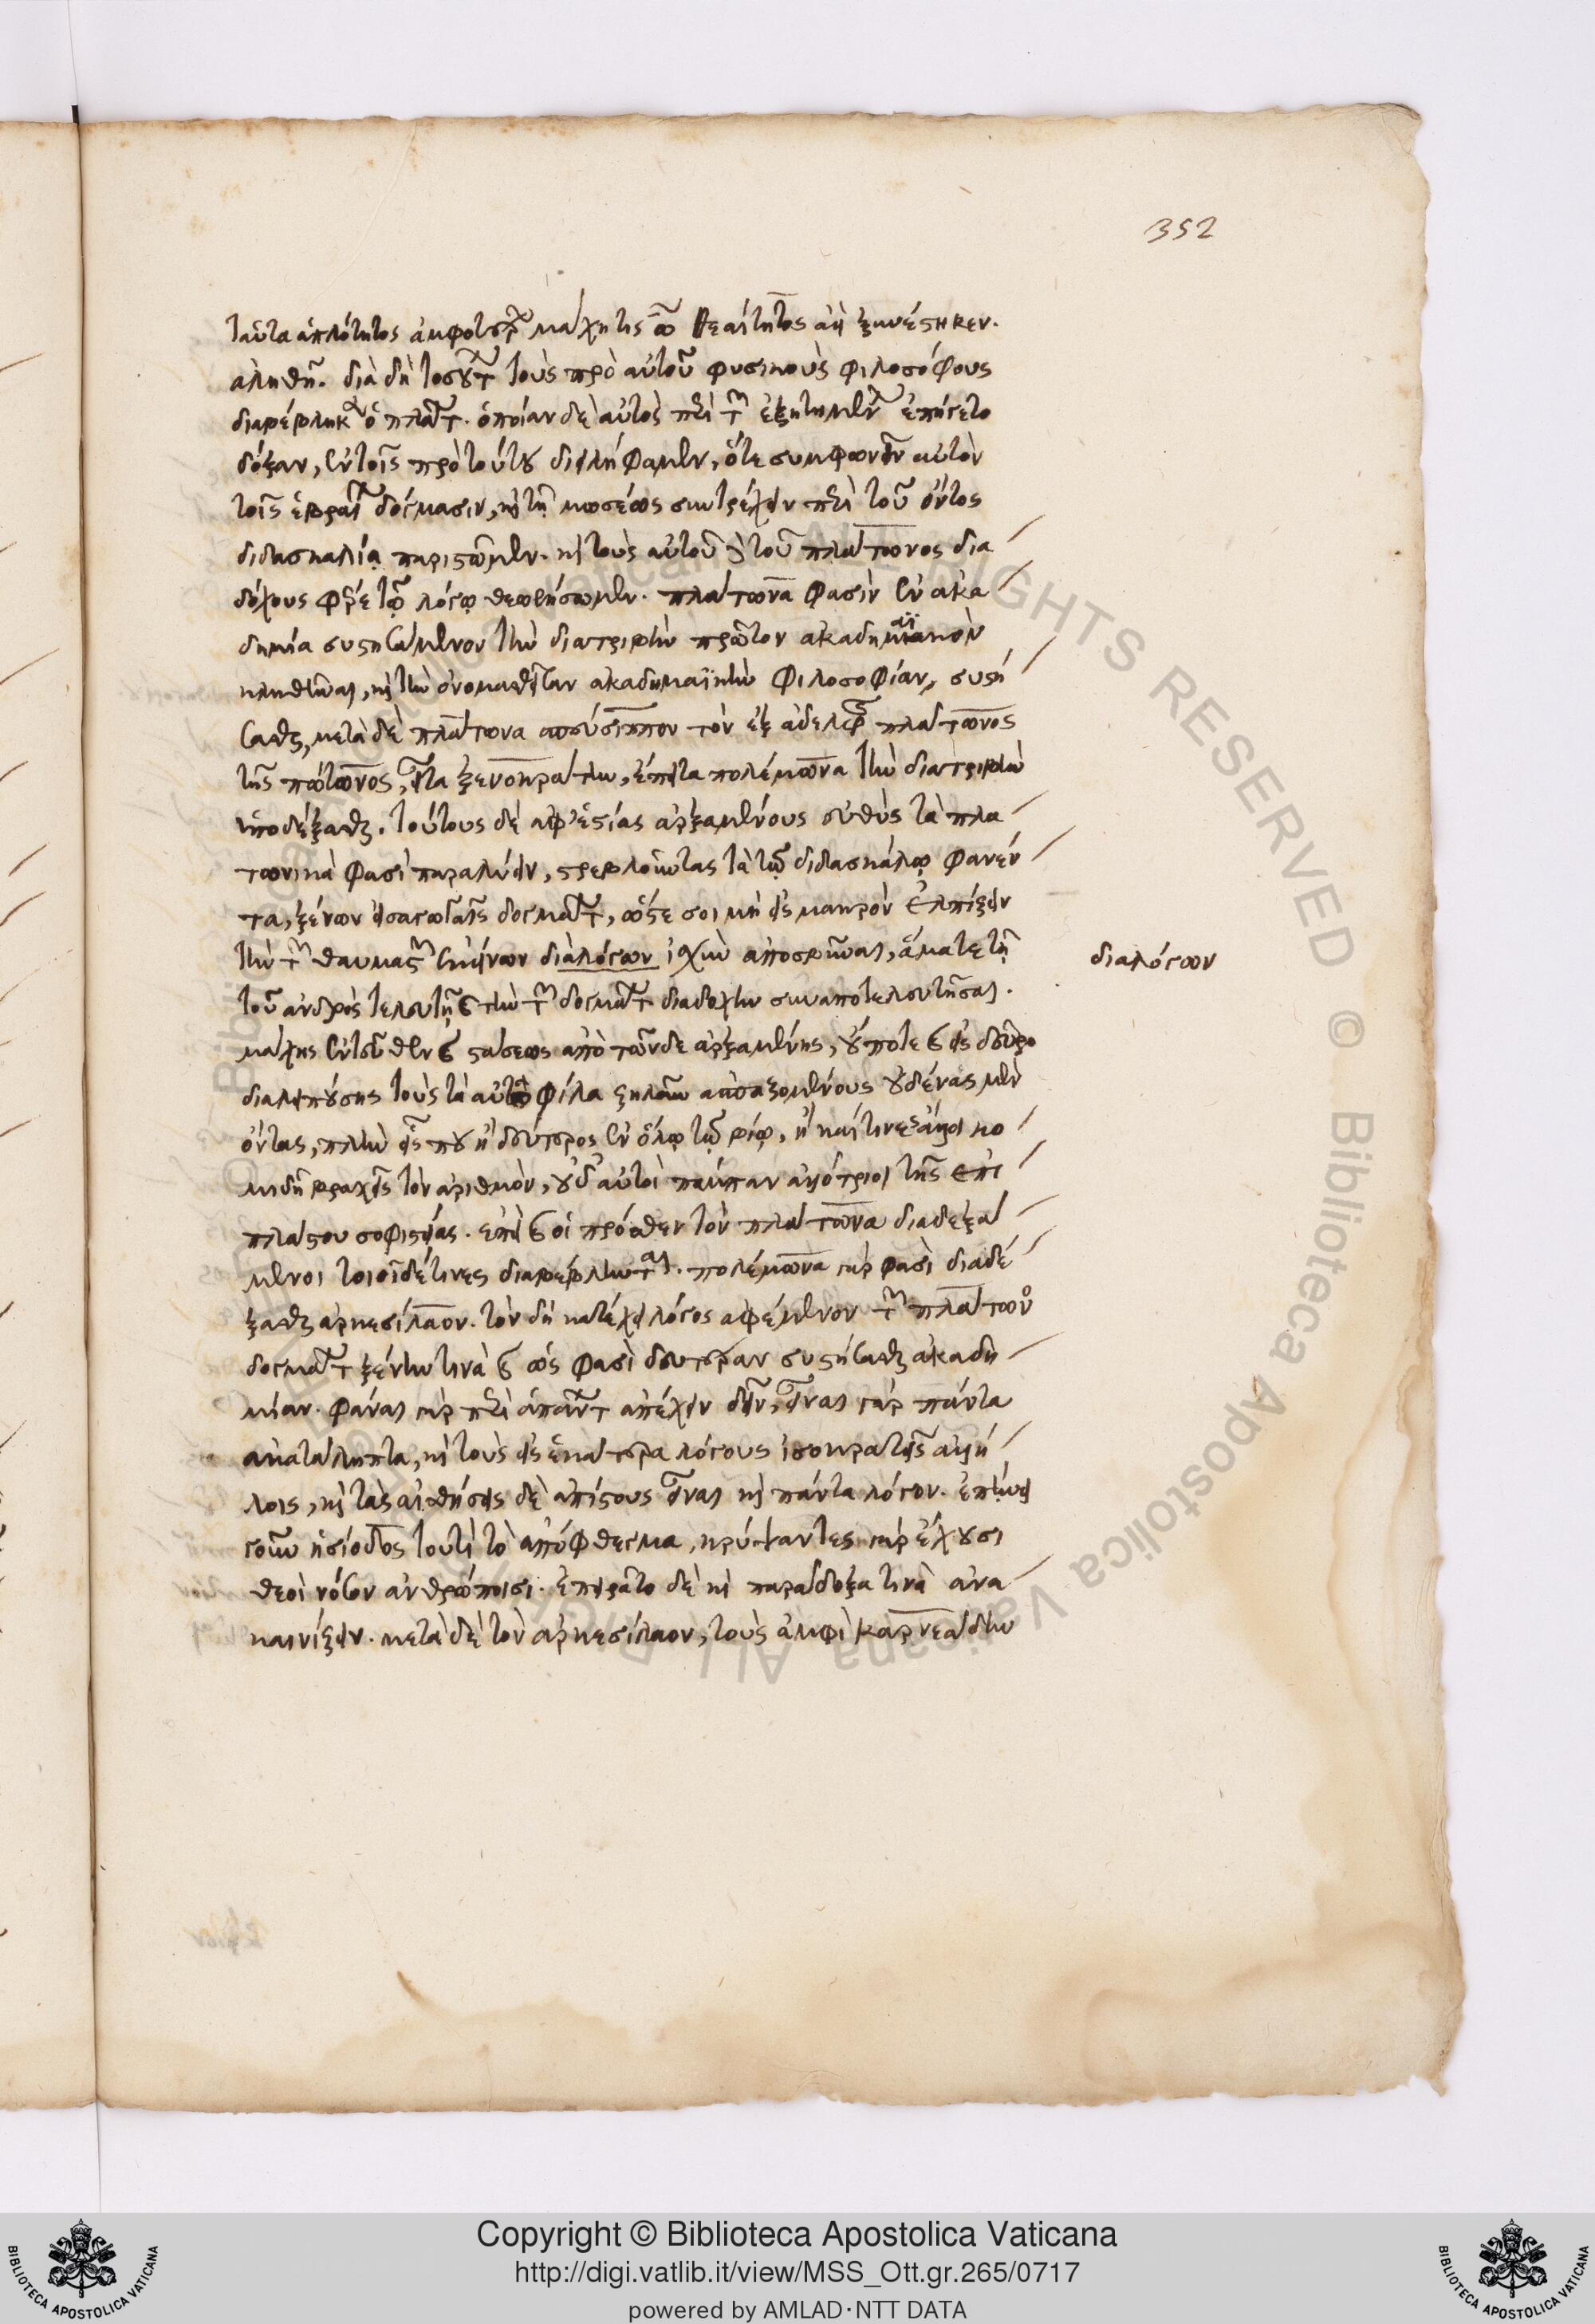 352
ταῦτα ἀπλότητος ἀμφοτέρων μάχη τις ὦ θεαίτητος ἀεὶ ξυνέστηκεν.
ἀληθῆ. διὰ δὴ τοσούτων τοὺς πρὸ αὐτοῦ φυσικοὺς φιλοσόφους
διαβέβληκεν ὁ πλάτων. ὁποίαν δὲ αὐτὸς περὶ τῶν ἐζητημένων ἐπήγετο
δόξαν, ἐν τοῖς πρὸ τούτου διειλήφαμεν, ὅτε συμφωνεῖν αὐτὸν
τοῖς ἑβραίων δόγμασιν, καὶ τῇ μωσέως συντρέχειν περὶ τοῦ ὄντος
διδασκαλίᾳ παριστῶμεν. καὶ τοὺς αὐτοῦ δὲ τοῦ πλάτωνος δια
δόχους φέρε τῷ λόγῳ θεωρήσωμεν. πλάτωνα φασὶν ἐν ἀκα
δημία συστησάμενον τὴν διατριβὴν πρῶτον ἀκαδημιαϊκὸν
κληθῆναι, καὶ τὴν ὀνομασθεῖσαν ἀκαδημαϊκὴν φιλοσοφίαν, συστή
σασθαι, μετὰ δὲ πλάτωνα σπεύσιππον τὸν ἐξ ἀδελφῆς πλάτωνος
τῆς ποτώνης, εἶτα ξενοκράτην, ἔπειτα πολέμωνα τὴν διατριβὴν
ὑποδέξασθαι. τούτους δὲ ἀφ' ἑστίας ἀρξαμένους εὐθὺς τὰ πλα
τωνικὰ φασὶ παραλύειν, στρεβλοῦντας τὰ τῷ διδασκάλῳ φανέν
τα, ξένων εἰσαγωγαῖς δογμάτων, ὥστε σοι μὴ εἰς μακρὸν ἐλπίζειν
τὴν τῶν θαυμαστῶν ἐκείνων διαλόγων ἰσχὺν ἀποσβῆναι, ἅμα τε τῇ
τοῦ ἀνδρὸς τελευτῇ καὶ τὴν τῶν δογμάτων διαδοχὴν συναποτελευτῆσαι.
μάχης ἐντεῦθεν καὶ στάσεως ἀπὸ τῶνδε ἀρξαμένης, οὔποτε καὶ εἰς δεῦρο
διαλιπούσης τοὺς τὰ αὐτῷ φίλα ζηλοῦν ἀσπαζομένους οὐδένας μὲν
ὄντας, πλὴν εἴ που ἢ δεύτερος ἐν ὅλῳ τῷ βίῳ, ἢ καί τινες ἄλλοι κο
μιδῇ βραχεῖς τὸν ἀριθμόν, οὐδ' αὐτοὶ πάμπαν ἀλλότριοι τῆς ἐπι
πλάστου σοφιστείας. ἐπεὶ καὶ οἱ πρόσθεν τὸν πλάτωνα διαδεξά
μενοι τοιοίδέ τινες διαβέβληνται. πολέμωνα γάρ φασὶ διαδέ
ξασθαι ἀρκεσίλαον. τὸν δὴ κατέχει λόγος ἀφέμενον τῶν πλάτωνος
δογμάτων ξένην τινὰ καὶ ὥς φασὶ δευτέραν συστήσασθαι ἀκαδη
μίαν. φάναι γὰρ περὶ ἁπάντων ἀπέχειν δεῖν, εἶναι γὰρ πάντα
ἀκατάληπτα, καὶ τοὺς εἰς ἑκάτερα λόγους ἰσοκρατεῖς ἀλλή
λοις, καὶ τὰς αἰσθήσεις δὲ ἀπίστους εἶναι καὶ πάντα λόγον. ἐπῄνει
γοῦν ἡσίοδος τουτὶ τὸ ἀπόφθεγμα, κρύψαντες γὰρ ἔχουσι
θεοὶ νόον ἀνθρώποισι. ἐπειρᾶτο δὲ καὶ παράδοξα τινὰ ἀνα
καινίζειν. μετὰ δὲ τὸν ἀρκεσίλαον, τοὺς ἀμφὶ καρνεάδην
διαλόγων
Copyright © Biblioteca Apostolica Vaticana
http://digi.vatlib.it/view/MSS_Ott.gr.265/0717
powered by AMLAD·NTT DATA
BIBLIOTECA APOSTOLICA VATICANA
BIBLIOTECA APOSTOLICA VATICANA
© Biblioteca Apostolica Vaticana ALL RIGHTS RESERVED